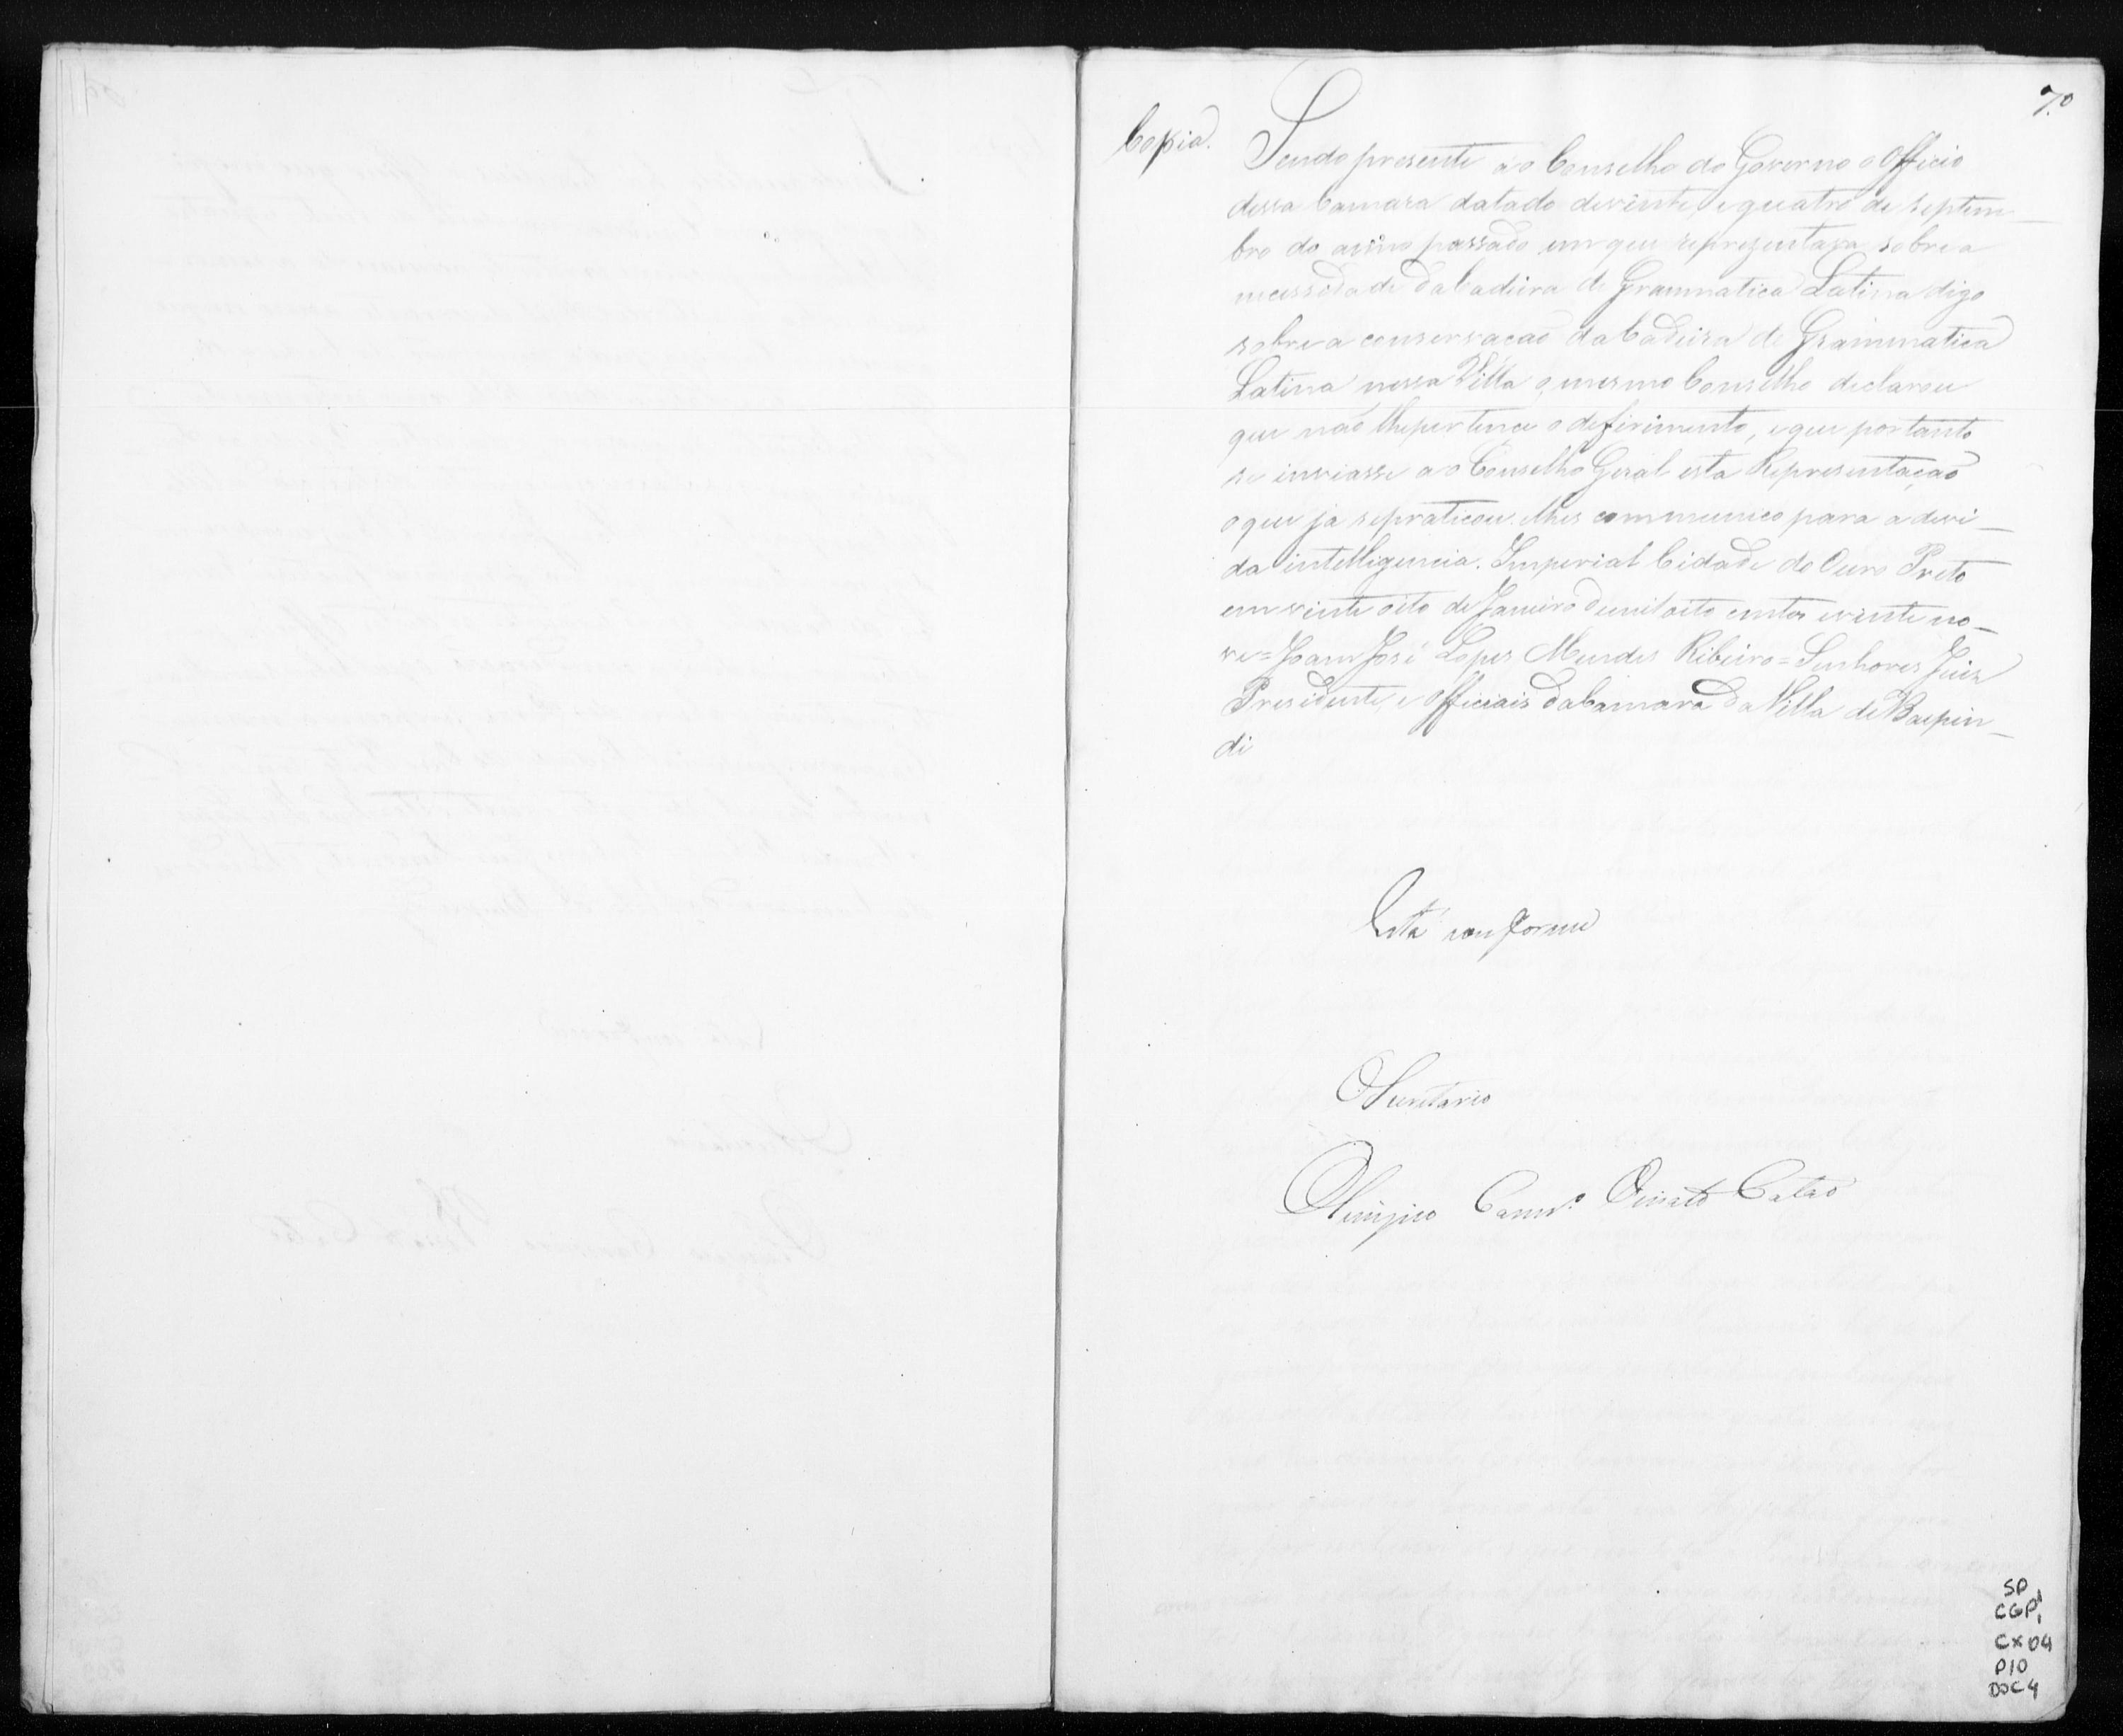 7.o
Copia.
Sendo presente ao Conselho do Governo o Officio
dessa Camara datado devinte, e quatro de Septem_
bro do anno passado em que representava sobre a
necessidade da Cadeira de Grammatica Latina digo
sobre a conservaçaõ da Cadeira de Grammatica
Latina nessa Villa o mesmo Conselho declarou
que naõ lhe pertence o deferimento, e que portanto
se inviasse ao Conselho Geral esta Representaçaõ
o que ja se praticou. e lhes communico para a devi_
da intelligencia. Imperial Cidade do Ouro Preto
em vinte oito de Janeiro de mil oito centos e vinte no_
ve = Joam José Lopes Mendes Ribeiro = Senhores Juiz
Presidente, e Officiais da Camara da Villa de Baepen_
di
Está conforme
O Secretario
Olimpico Carnr.o Catao
SP
CGP1
CX04
P10
DOC4